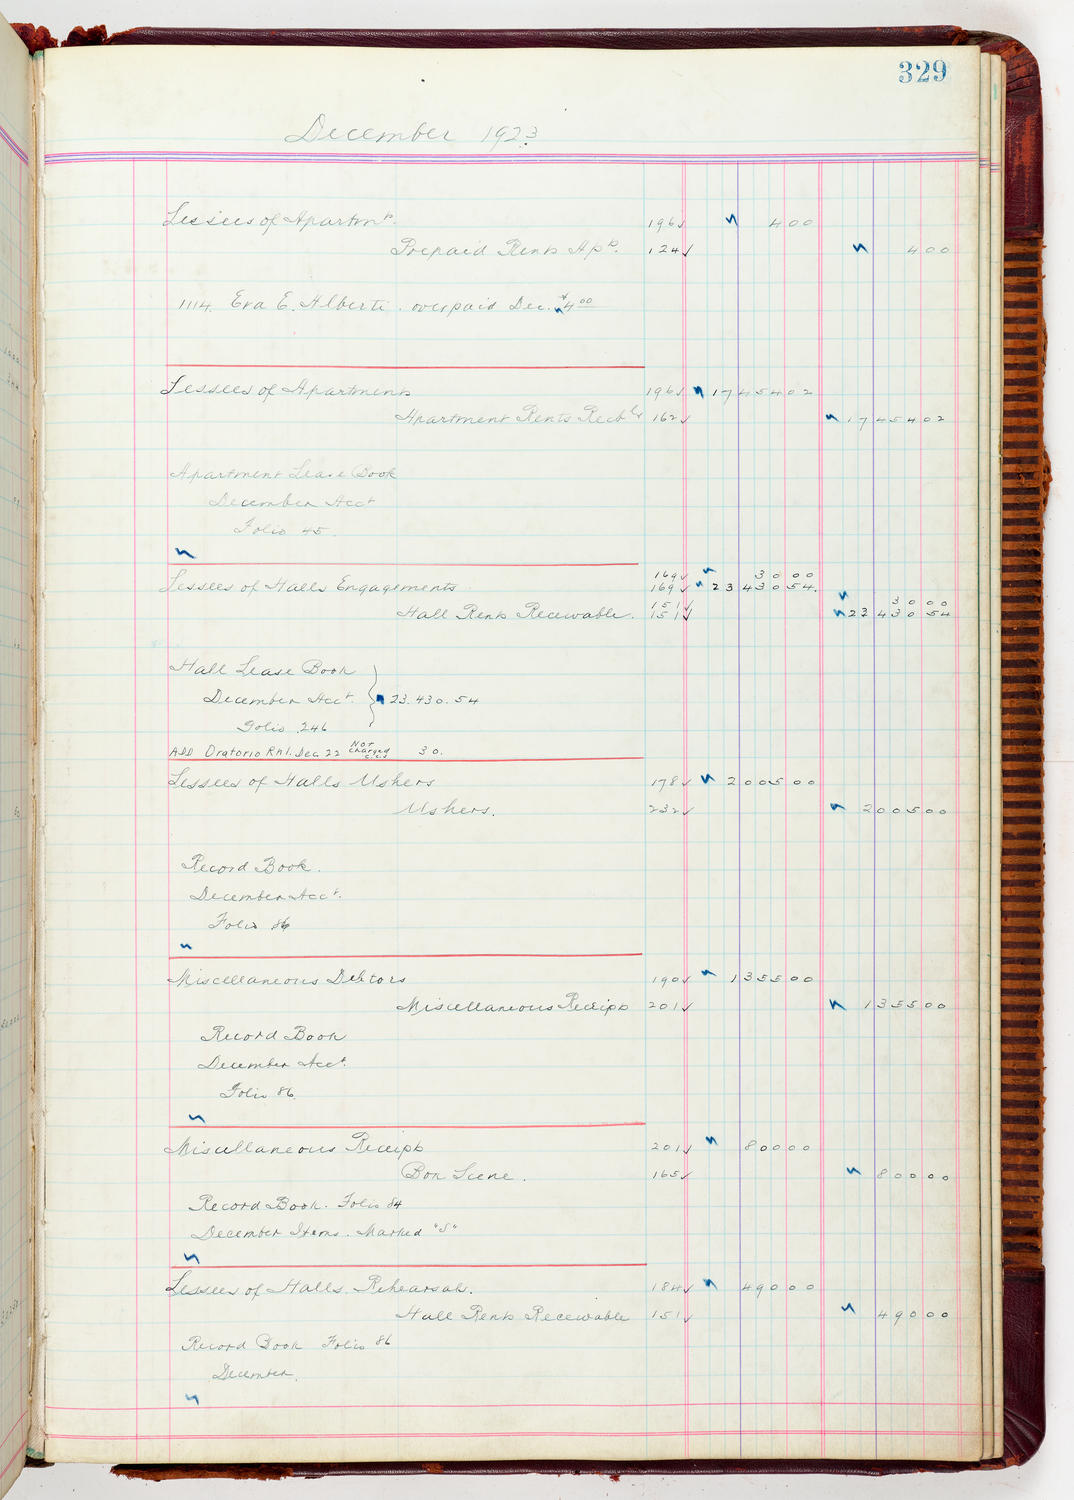 329
December 1923
Lessees of Apartmts. 196✓ 4 00
Prepaid Rents Apts. 124✓ 4 00
1114. Eva E. Alberti. overpaid Dec. $4 00
Lessees of Apartments 196✓ 17 454 02
Apartment Rents Recble 162✓ 17 454 02
Apartment Lease Book
December Acct
Folio 45.
169✓ 30 00
Lessees of Halls Engagements 169✓ 23 430 54.
151✓ 30 00
Hall Rents Receivable. 151✓ 23 430 54
Hall Lease Book
December Acct. 23.430.54
Folio 246
Add Oratorio Rhl. Dec 22 Not Charged 30.
Lessees of Halls Ushers 178✓ 2 005 00
Ushers. 232✓ 2 005 00
Record Book.
December Acct.
Folio 86
Miscellaneous Debtors 190✓ 1 355 00
Miscellaneous Receipts 201✓ 1 355 00
Record Book
December Acct.
Folio 86.
Miscellaneous Receipts 201✓ 800 00
Bon Scene. 165✓ 800 00
Record Book. Folio 84
December Items. Marked "S"
Lessees of Halls. Rehearsals. 184✓ 490 00
Hall Rents Receivable 151✓ 490 00
Record Book Folio 86
December.